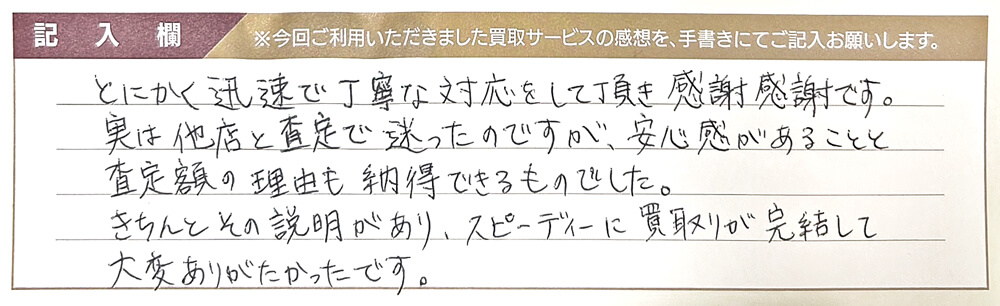 記入欄
※今回ご利用いただきました買取サービスの感想を、手書きにてご記入お願いします。
とにかく迅速で丁寧な対応をして頂き感謝感謝です。
実は他店と査定で迷ったのですが、安心感があることと
査定額の理由も納得できるものでした。
きちんとその説明があり、スピーディーに買取りが完結して
大変ありがたかったです。